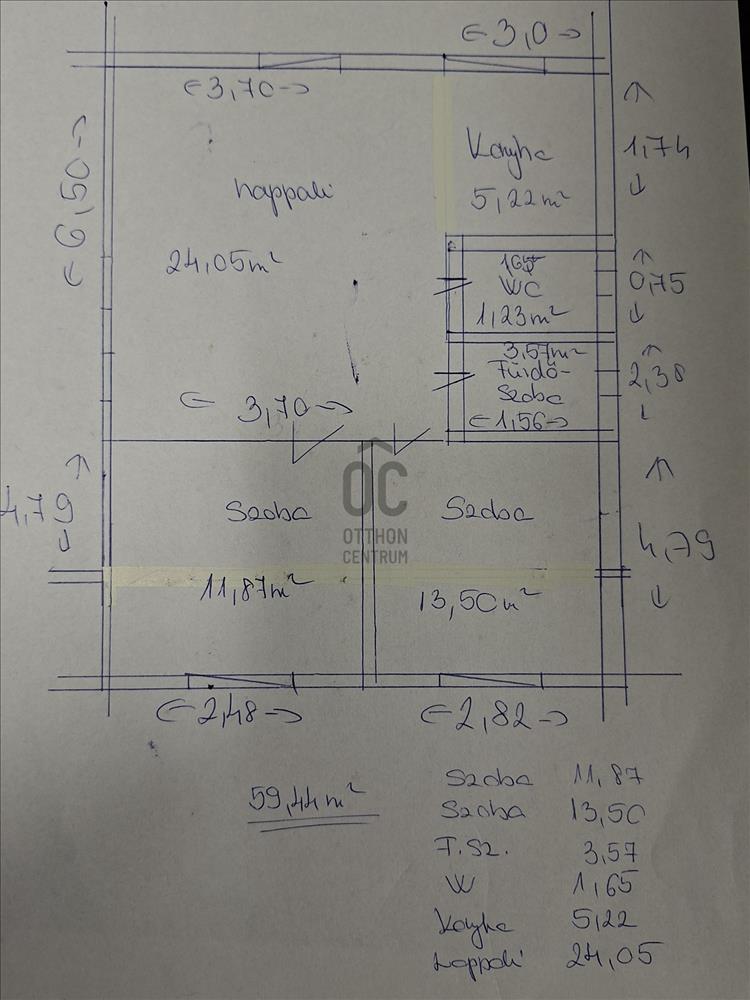 ← 3,0 →
← 3,70 →
↑
1,74
↓
Konyha
5,22 m²
← 6,50 →
nappali
24,05 m²
165
WC
1,23 m²
↑
0,75
↓
3,57 m²
Fürdő-
Szoba
← 1,56 →
↑
2,38
↓
← 3,70 →
↑
4,79
↓
Szoba
11,87 m²
Szoba
13,50 m²
↑
4,79
↓
OC
OTTHON
CENTRUM
← 2,48 →
← 2,82 →
59,44 m²
Szoba 11,87
Szoba 13,50
F.Sz. 3,57
W 1,65
Konyha 5,22
nappali 24,05